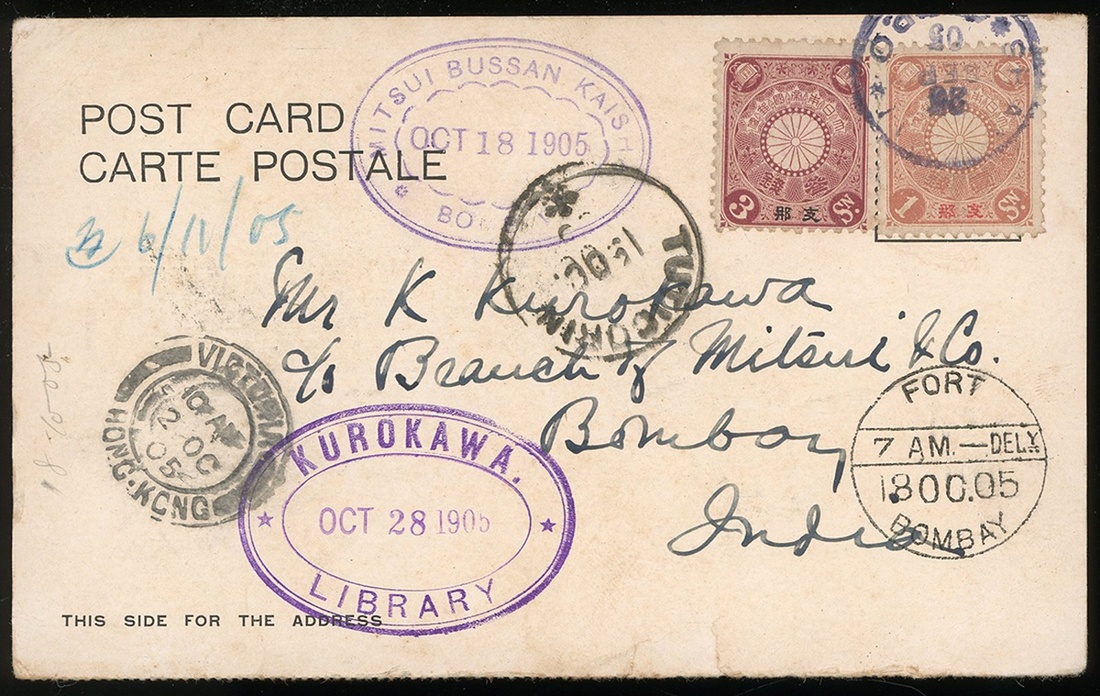 POST CARD
CARTE POSTALE
MITSUI BUSSAN KAISH
OCT 18 1905
BOMBAY
05
26
3 Sn.
支那
1 Sn.
支那
6/11/05
TUTICORIN
Mr K Kurokawa
c/o Branch of Mitsui & Co.
Bombay
India
VICTORIA
10 AM
2 OC
05
HONG-KONG
FORT
7 AM.—DELY.
18 OC.05
BOMBAY
KUROKAWA.
OCT 28 1905
LIBRARY
THIS SIDE FOR THE ADDRESS